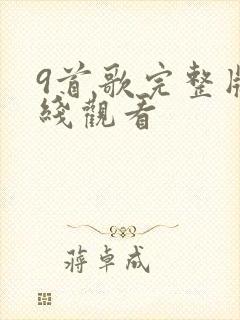 9首歌完整版
綫觀看
蔣卓成